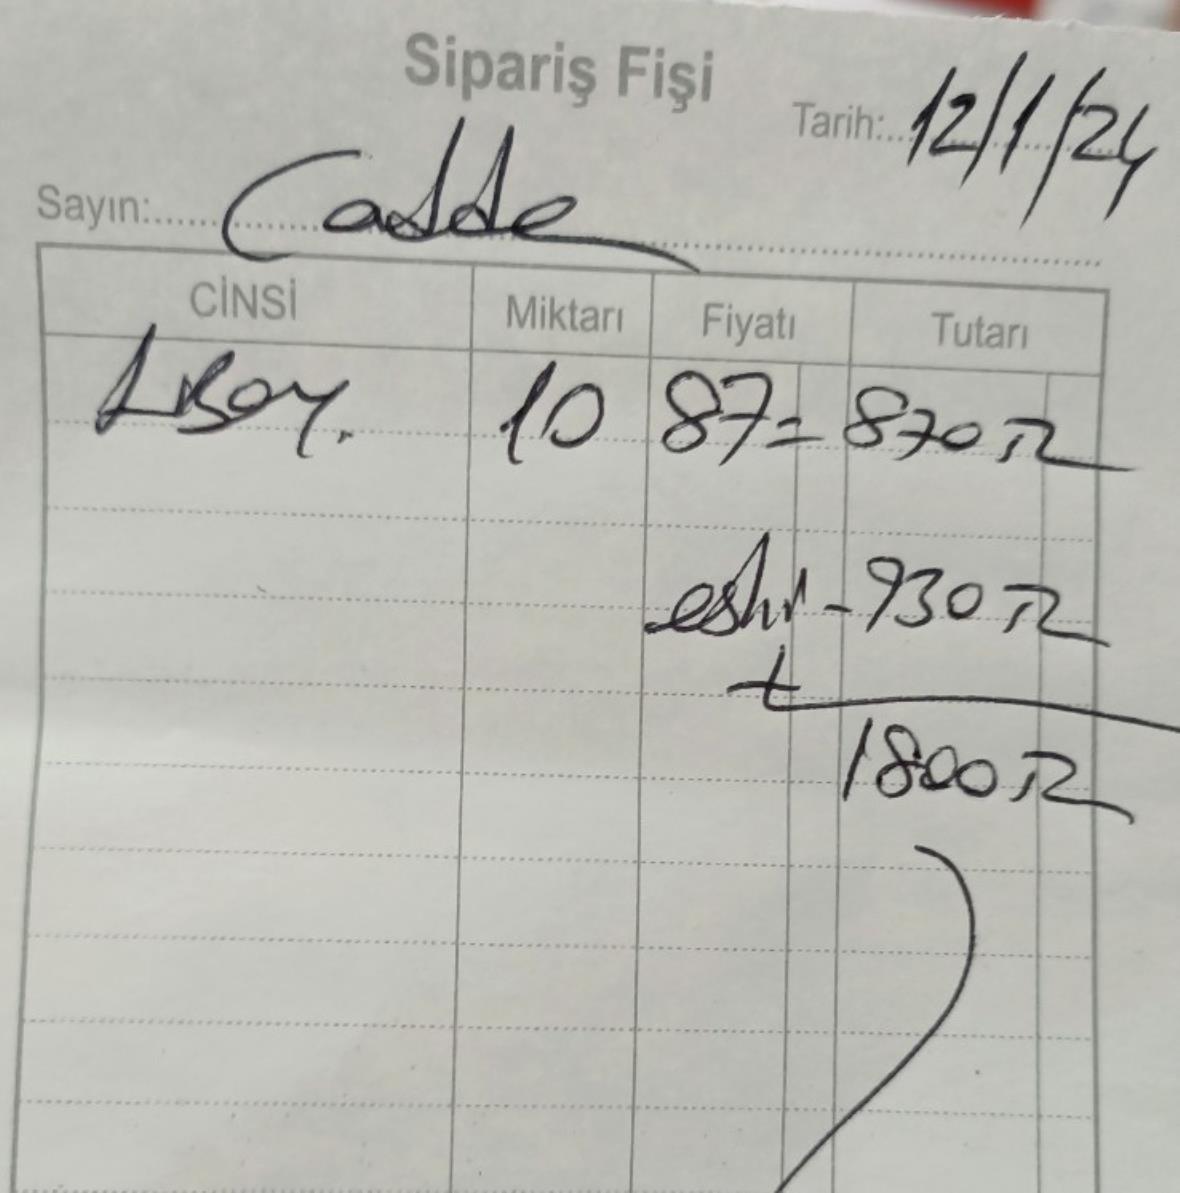 Sipariş Fişi
Tarih: 12/1/24
Sayın: Cadde
CİNSİ Miktarı Fiyatı Tutarı
10 87 = 870 TL
eski - 930 TL
+
1800 TL